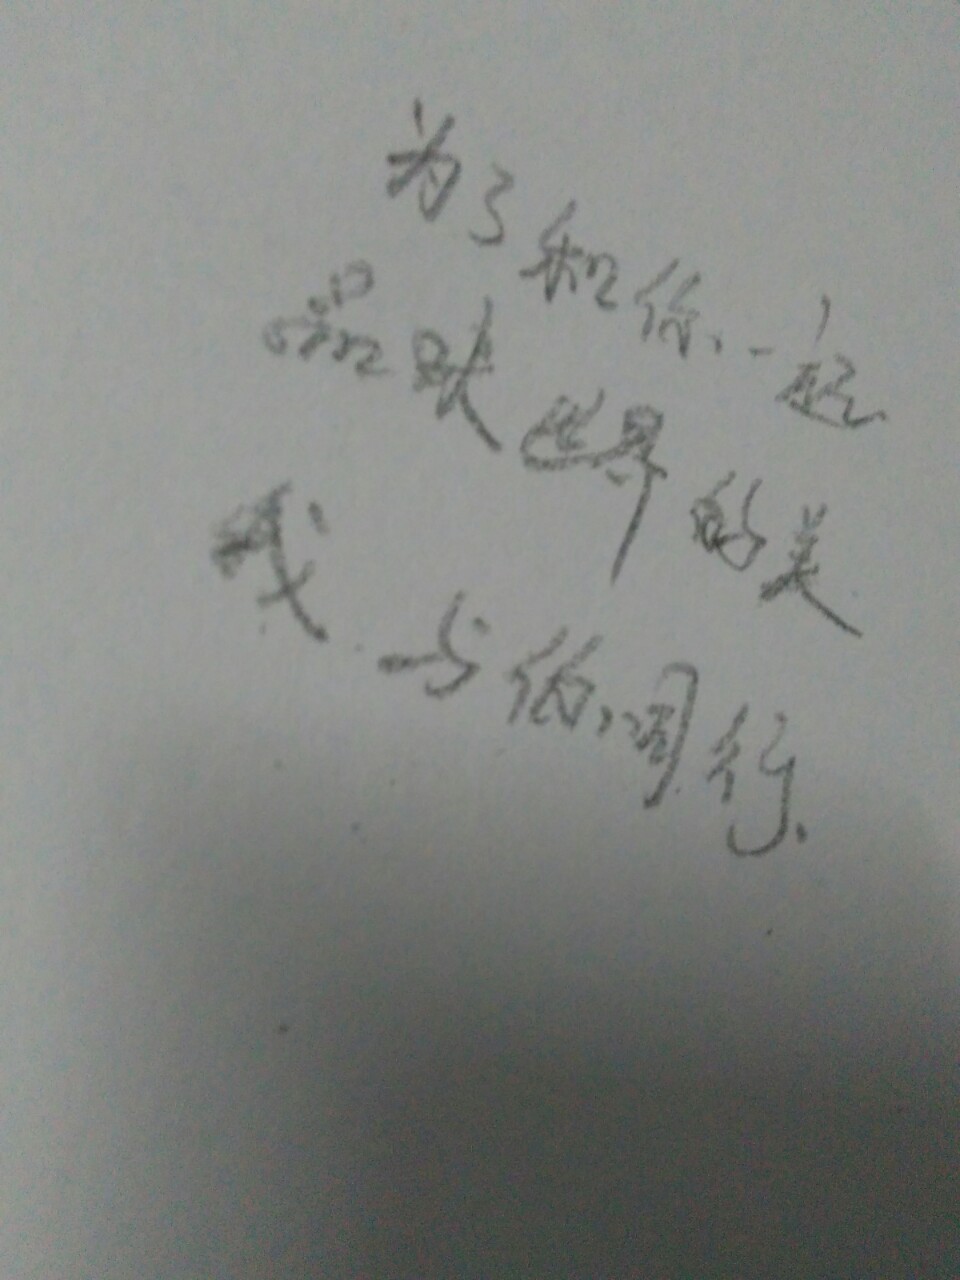 为了和你一起
品味世界的美
我与你同行